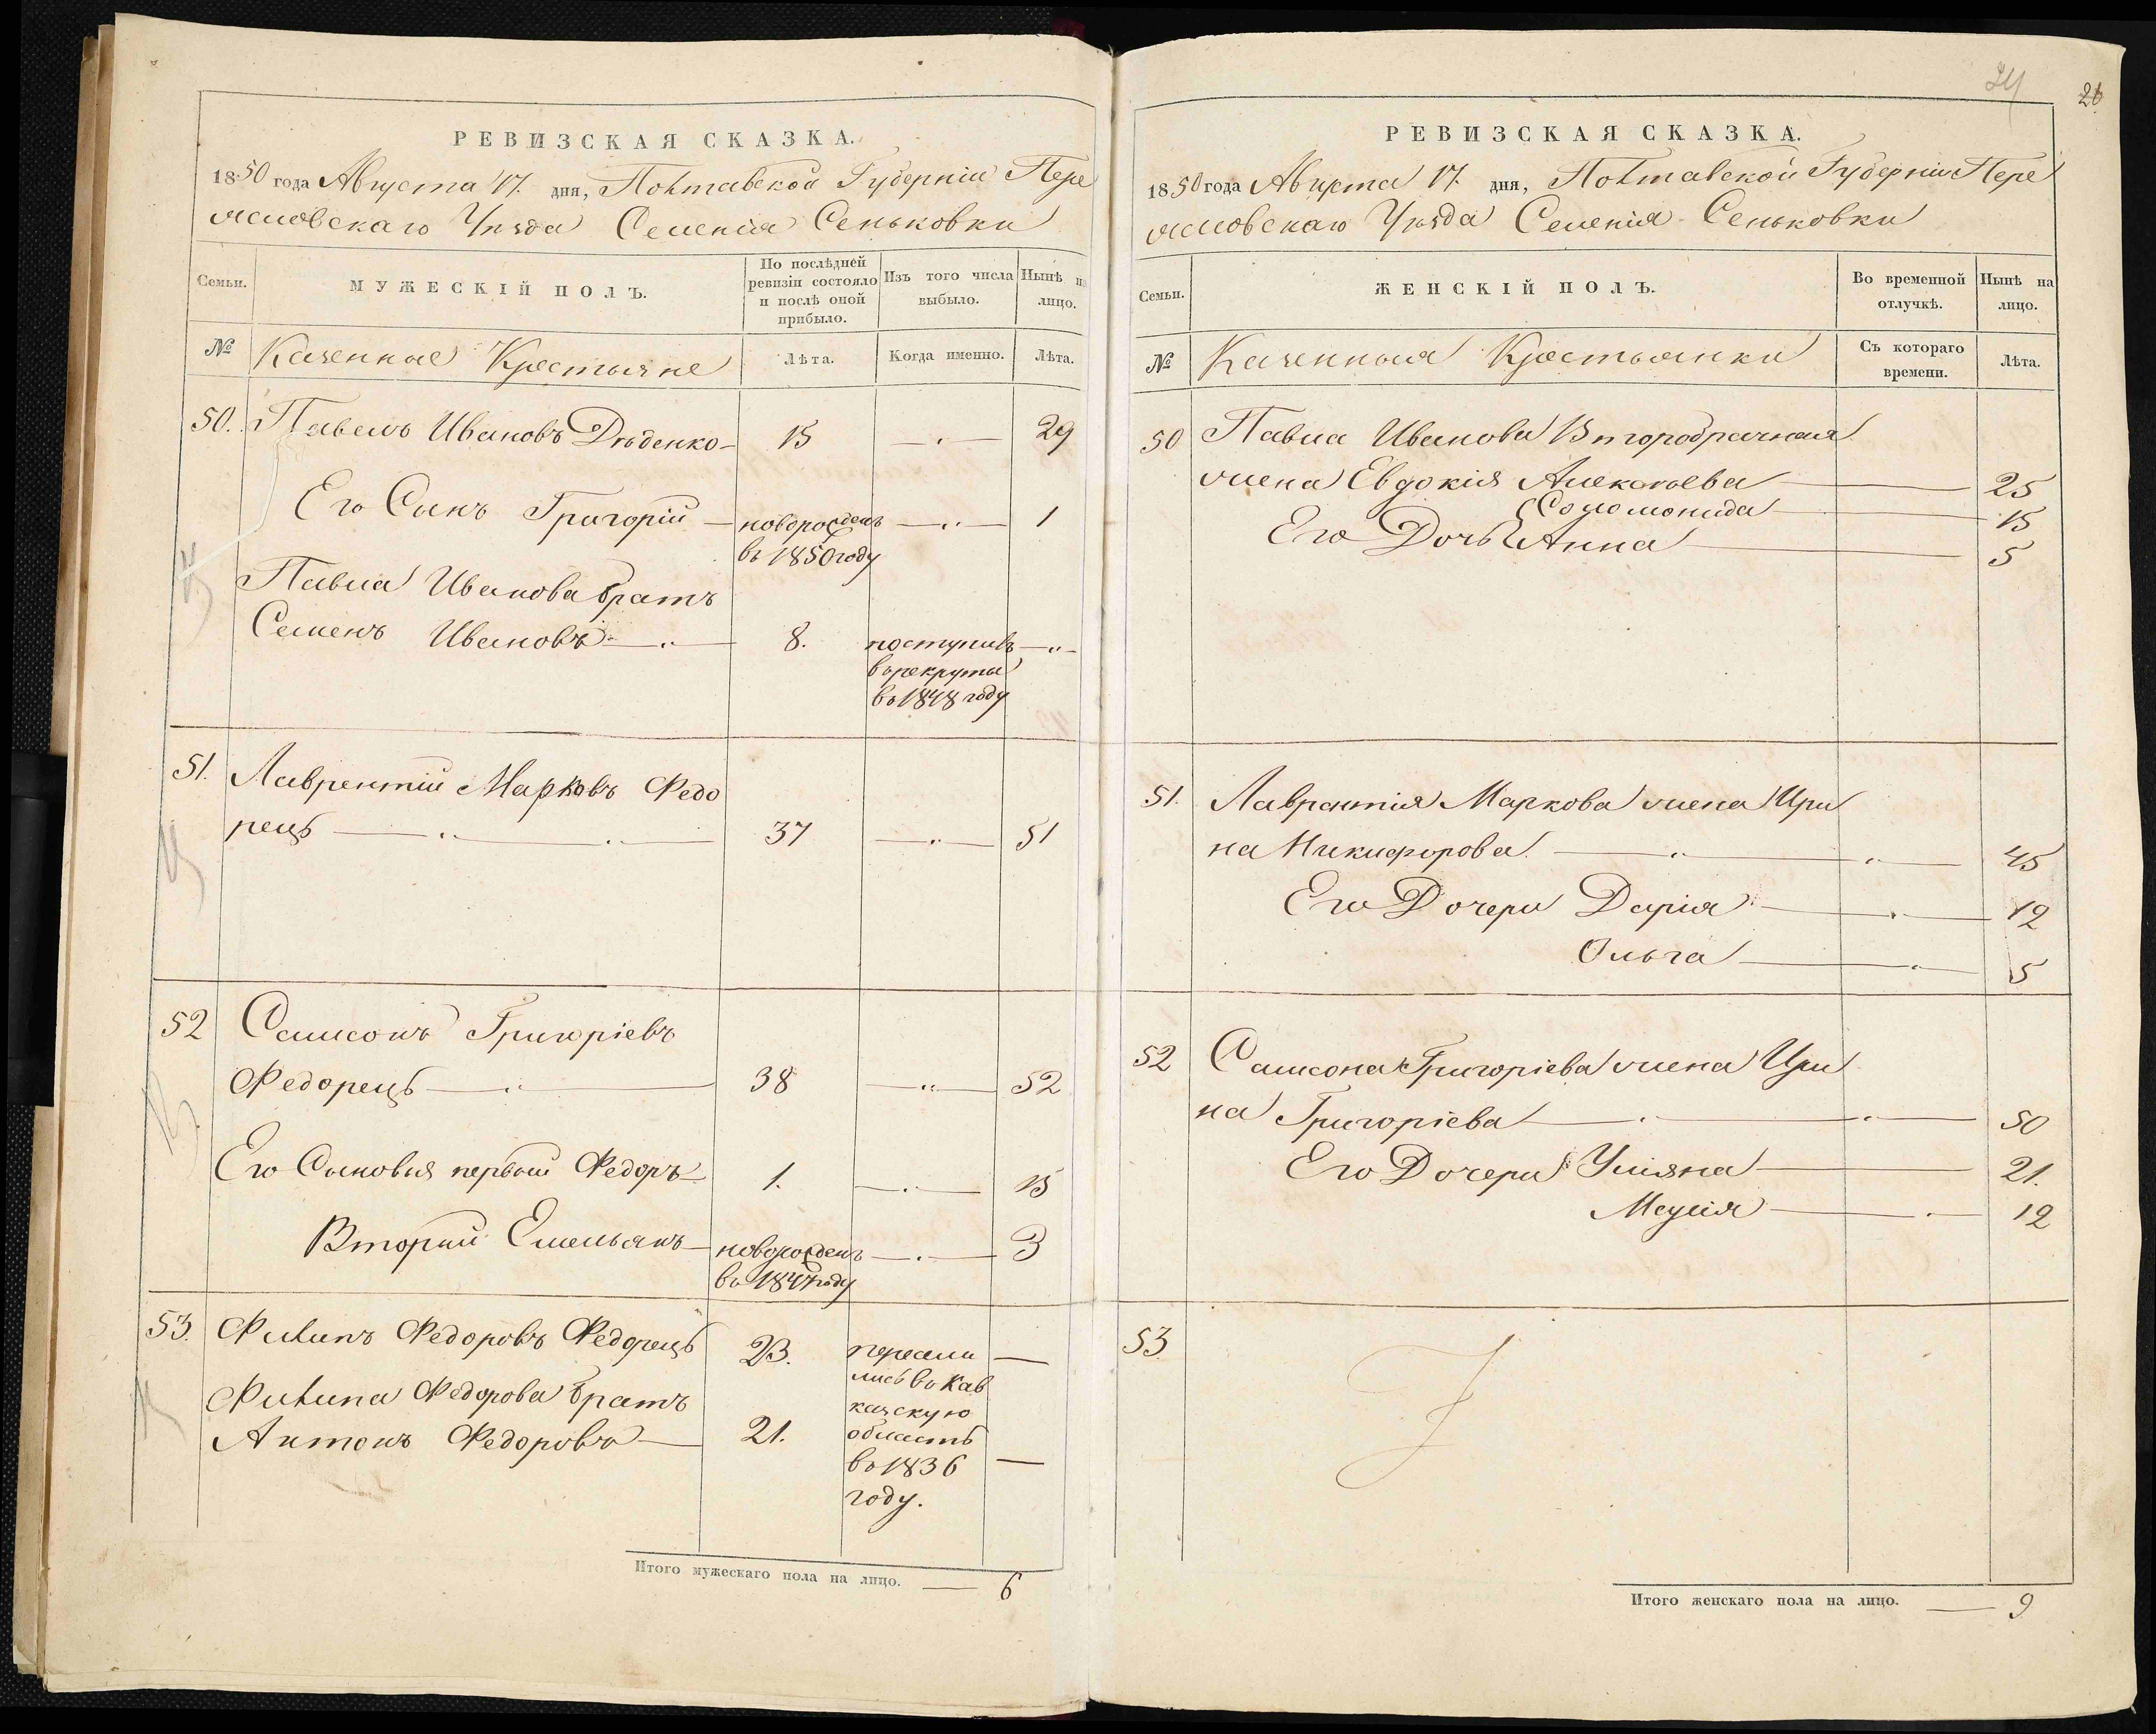 РЕВИЗСКАЯ СКАЗКА.
1850 года Августа 17. дня, Полтавской Губерніи Пере
яславскаго Уѣзда Селенія Сеньковки
Семьи.
МУЖЕСКІЙ ПОЛЪ.
По послѣдней
ревизіи состояло
и послѣ оной
прибыло.
Изъ того числа
выбыло.
Нынѣ на
лицо.
№
Казенные Крестьяне
Лѣта.
Когда именно.
Лѣта.
50. Павелъ Ивановъ Дѣденко 15 29
Его Сынъ Григорій новорожденъ 1
въ 1850 году
Павла Иванова братъ
Семенъ Ивановъ 8. поступилъ
въ рекруты
въ 1848 году
51. Лаврентій Марковъ Федо
рецъ 37 51
52 Самсонъ Григоріевъ
Федорецъ 38 52
Его Сыновья первый Федоръ 1. 15
Вторый Емельянъ новорожденъ 3
въ 1847 году
53. Филипъ Федоровъ Федорецъ 23. пересели
лись въ Кав
казскую
область
въ 1836
году.
Филипа Федорова братъ
Антонъ Федоровъ 21.
Итого мужескаго пола на лицо. 6
24
26
РЕВИЗСКАЯ СКАЗКА.
1850 года Августа 17. дня, Полтавской Губерніи Пере
яславскаго Уѣзда Селенія Сеньковки
Семьи.
ЖЕНСКІЙ ПОЛЪ.
Во временной
отлучкѣ.
Нынѣ на
лицо.
№
Казенныя Крестьянки
Съ котораго
времени.
Лѣта.
50 Павла Иванова Второбрачная
жена Евдокія Алексѣева 25
Соломонида 15
Его Дочь Анна 5
51. Лаврентія Маркова жена Ири
на Никифорова. 45
Его Дочери Дарія 12
Ольга 5
52 Самсона Григоріева жена Ири
на Григоріева 50
Его Дочери Уліяна 21.
12
53
Итого женскаго пола на лицо. 9